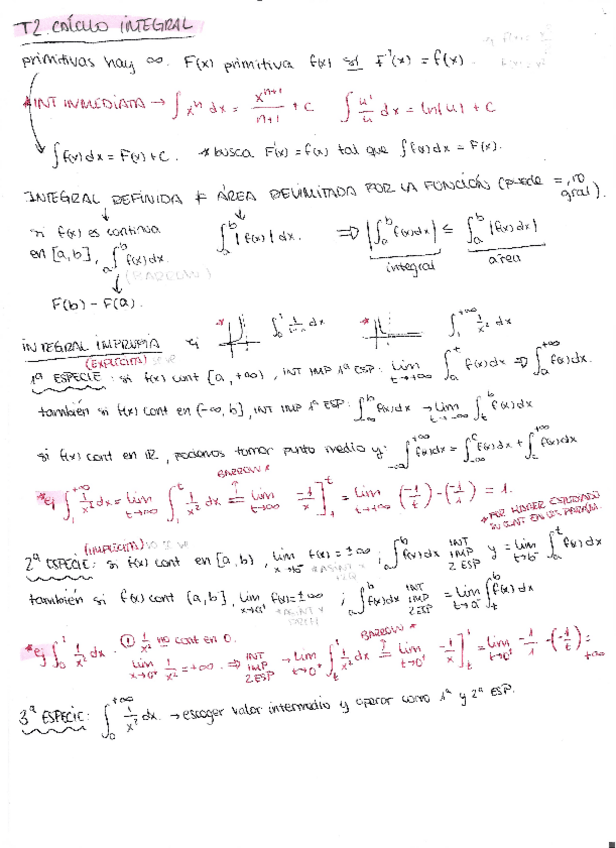 T2. CÁLCULO INTEGRAL
primitivas hay ∞. F(x) primitiva f(x) si F'(x) = f(x).
*INT INMEDIATA → ∫ xⁿ dx = xⁿ⁺¹/n+1 + C ∫ u'/u dx = ln|u| + C
∫f(x)dx = F(x) + C. *busca F'(x) = f(x) tal que ∫f(x)dx = F(x).
INTEGRAL DEFINIDA ≠ ÁREA DELIMITADA POR LA FUNCIÓN (puede =, no gral).
si f(x) es continua ∫ₐᵇ |f(x)| dx. ⇒ |∫ₐᵇ f(x)dx| ≤ ∫ₐᵇ |f(x)dx|
en [a,b], ∫ₐᵇ f(x)dx. integral área
(BARROW)
F(b) - F(a).
INTEGRAL IMPROPIA ej * ∫₀¹ 1/x² dx * ∫₁⁺∞ 1/x² dx
(EXPLÍCITA)
1ª ESPECIE: si f(x) cont [a, +∞), INT IMP 1ª ESP: lim t→+∞ ∫ₐᵗ f(x)dx ⇒ ∫ₐ⁺∞ f(x)dx.
también si f(x) cont en (-∞, b], INT IMP 1ª ESP: ∫₋∞ᵇ f(x)dx → lim t→-∞ ∫ₜᵇ f(x)dx
si f(x) cont en ℝ, podemos tomar punto medio y: ∫₋∞⁺∞ f(x)dx = ∫₋∞ᶜ f(x)dx + ∫⁺∞ f(x)dx
BARROW *
*ej ∫₁⁺∞ 1/x² dx = lim t→∞ ∫₁ᵗ 1/x² dx = lim t→∞ -1/x]₁ᵗ = lim t→+∞ (-1/t) - (-1/1) = 1.
*POR HABER ESTUDIADO SU CONT EN
(IMPLÍCITA)
2ª ESPECIE: si f(x) cont en [a, b), lim x→b⁻ f(x) = ±∞; ∫ₐᵇ f(x)dx INT IMP 2 ESP y = lim t→b⁻ ∫ₐᵗ f(x)dx
también si f(x) cont (a, b], lim x→a⁺ f(x) = ±∞; ∫ₐᵇ f(x)dx INT IMP 2 ESP = lim t→a⁺ ∫ₜᵇ f(x)dx
BARROW *
*ej ∫₀¹ 1/x² dx. ① 1/x² no cont en 0.
lim x→0⁺ 1/x² = +∞. ⇒ INT IMP 2 ESP → lim t→0⁺ ∫ₜ¹ 1/x² dx = lim t→0⁺ -1/x]ₜ¹ = lim t→0⁺ -1/1 - (-1/t) = +∞
3ª ESPECIE: ∫₀⁺∞ 1/x² dx. → escoger valor intermedio y operar como 1ª y 2ª ESP.